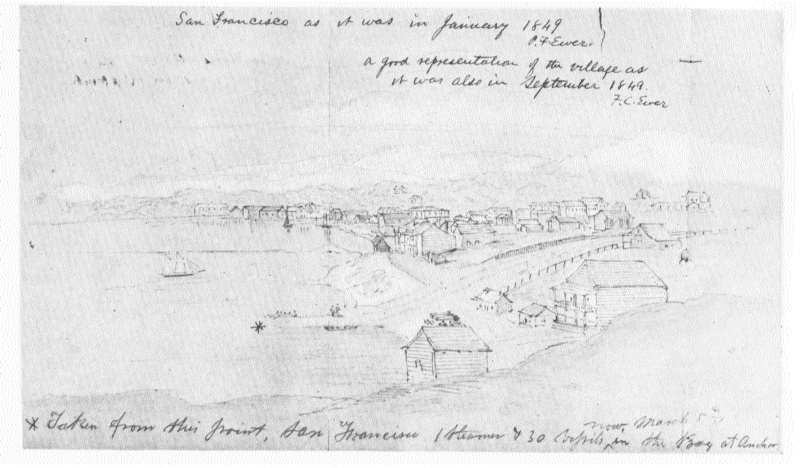 San Francisco as it was in January 1849
P.F. Ewer.
a good representation of the village as
it was also in September 1849.
F.C. Ewer
*
* Taken from this point, San Francisco 1 steamer & 30 in the Bay at Anchor
now, March 5th